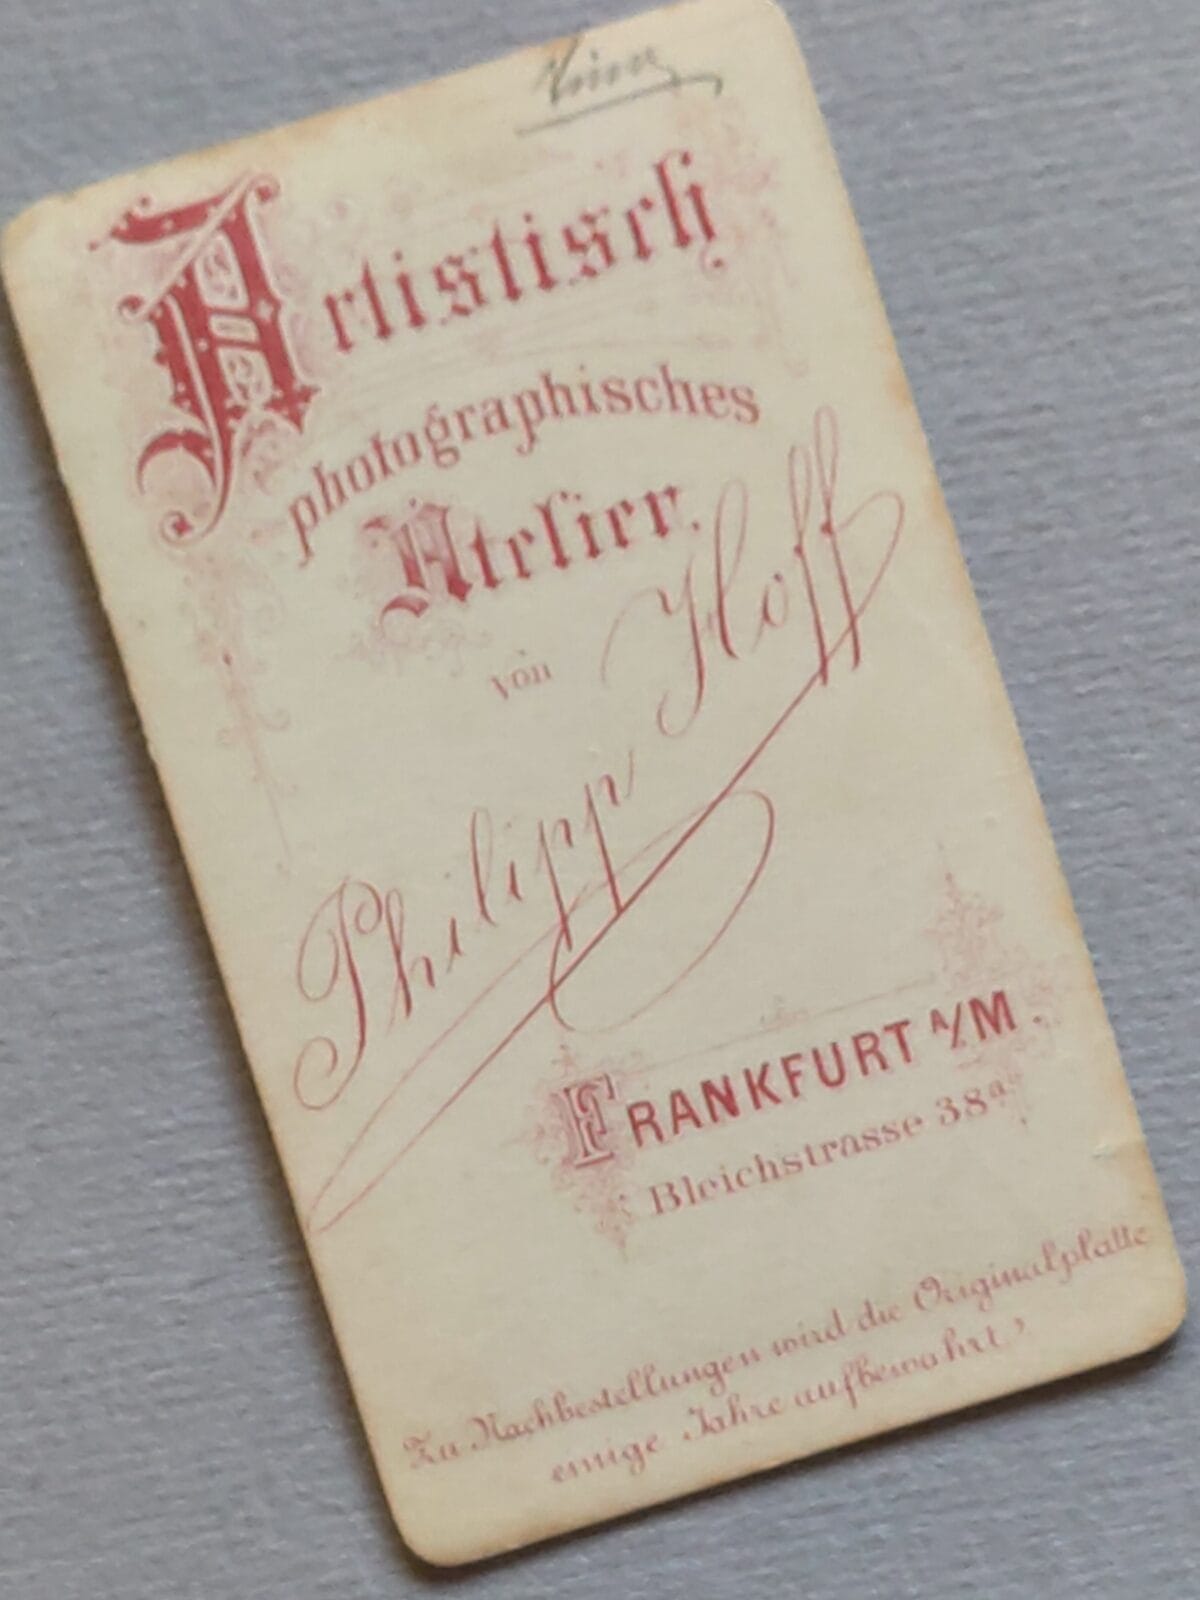 Artistisch
photographisches
Atelier.
von
Philipp Hoff
FRANKFURT A/M.
Bleichstrasse 38a
Zu Nachbestellungen wird die Originalplatte
einige Jahre aufbewahrt.